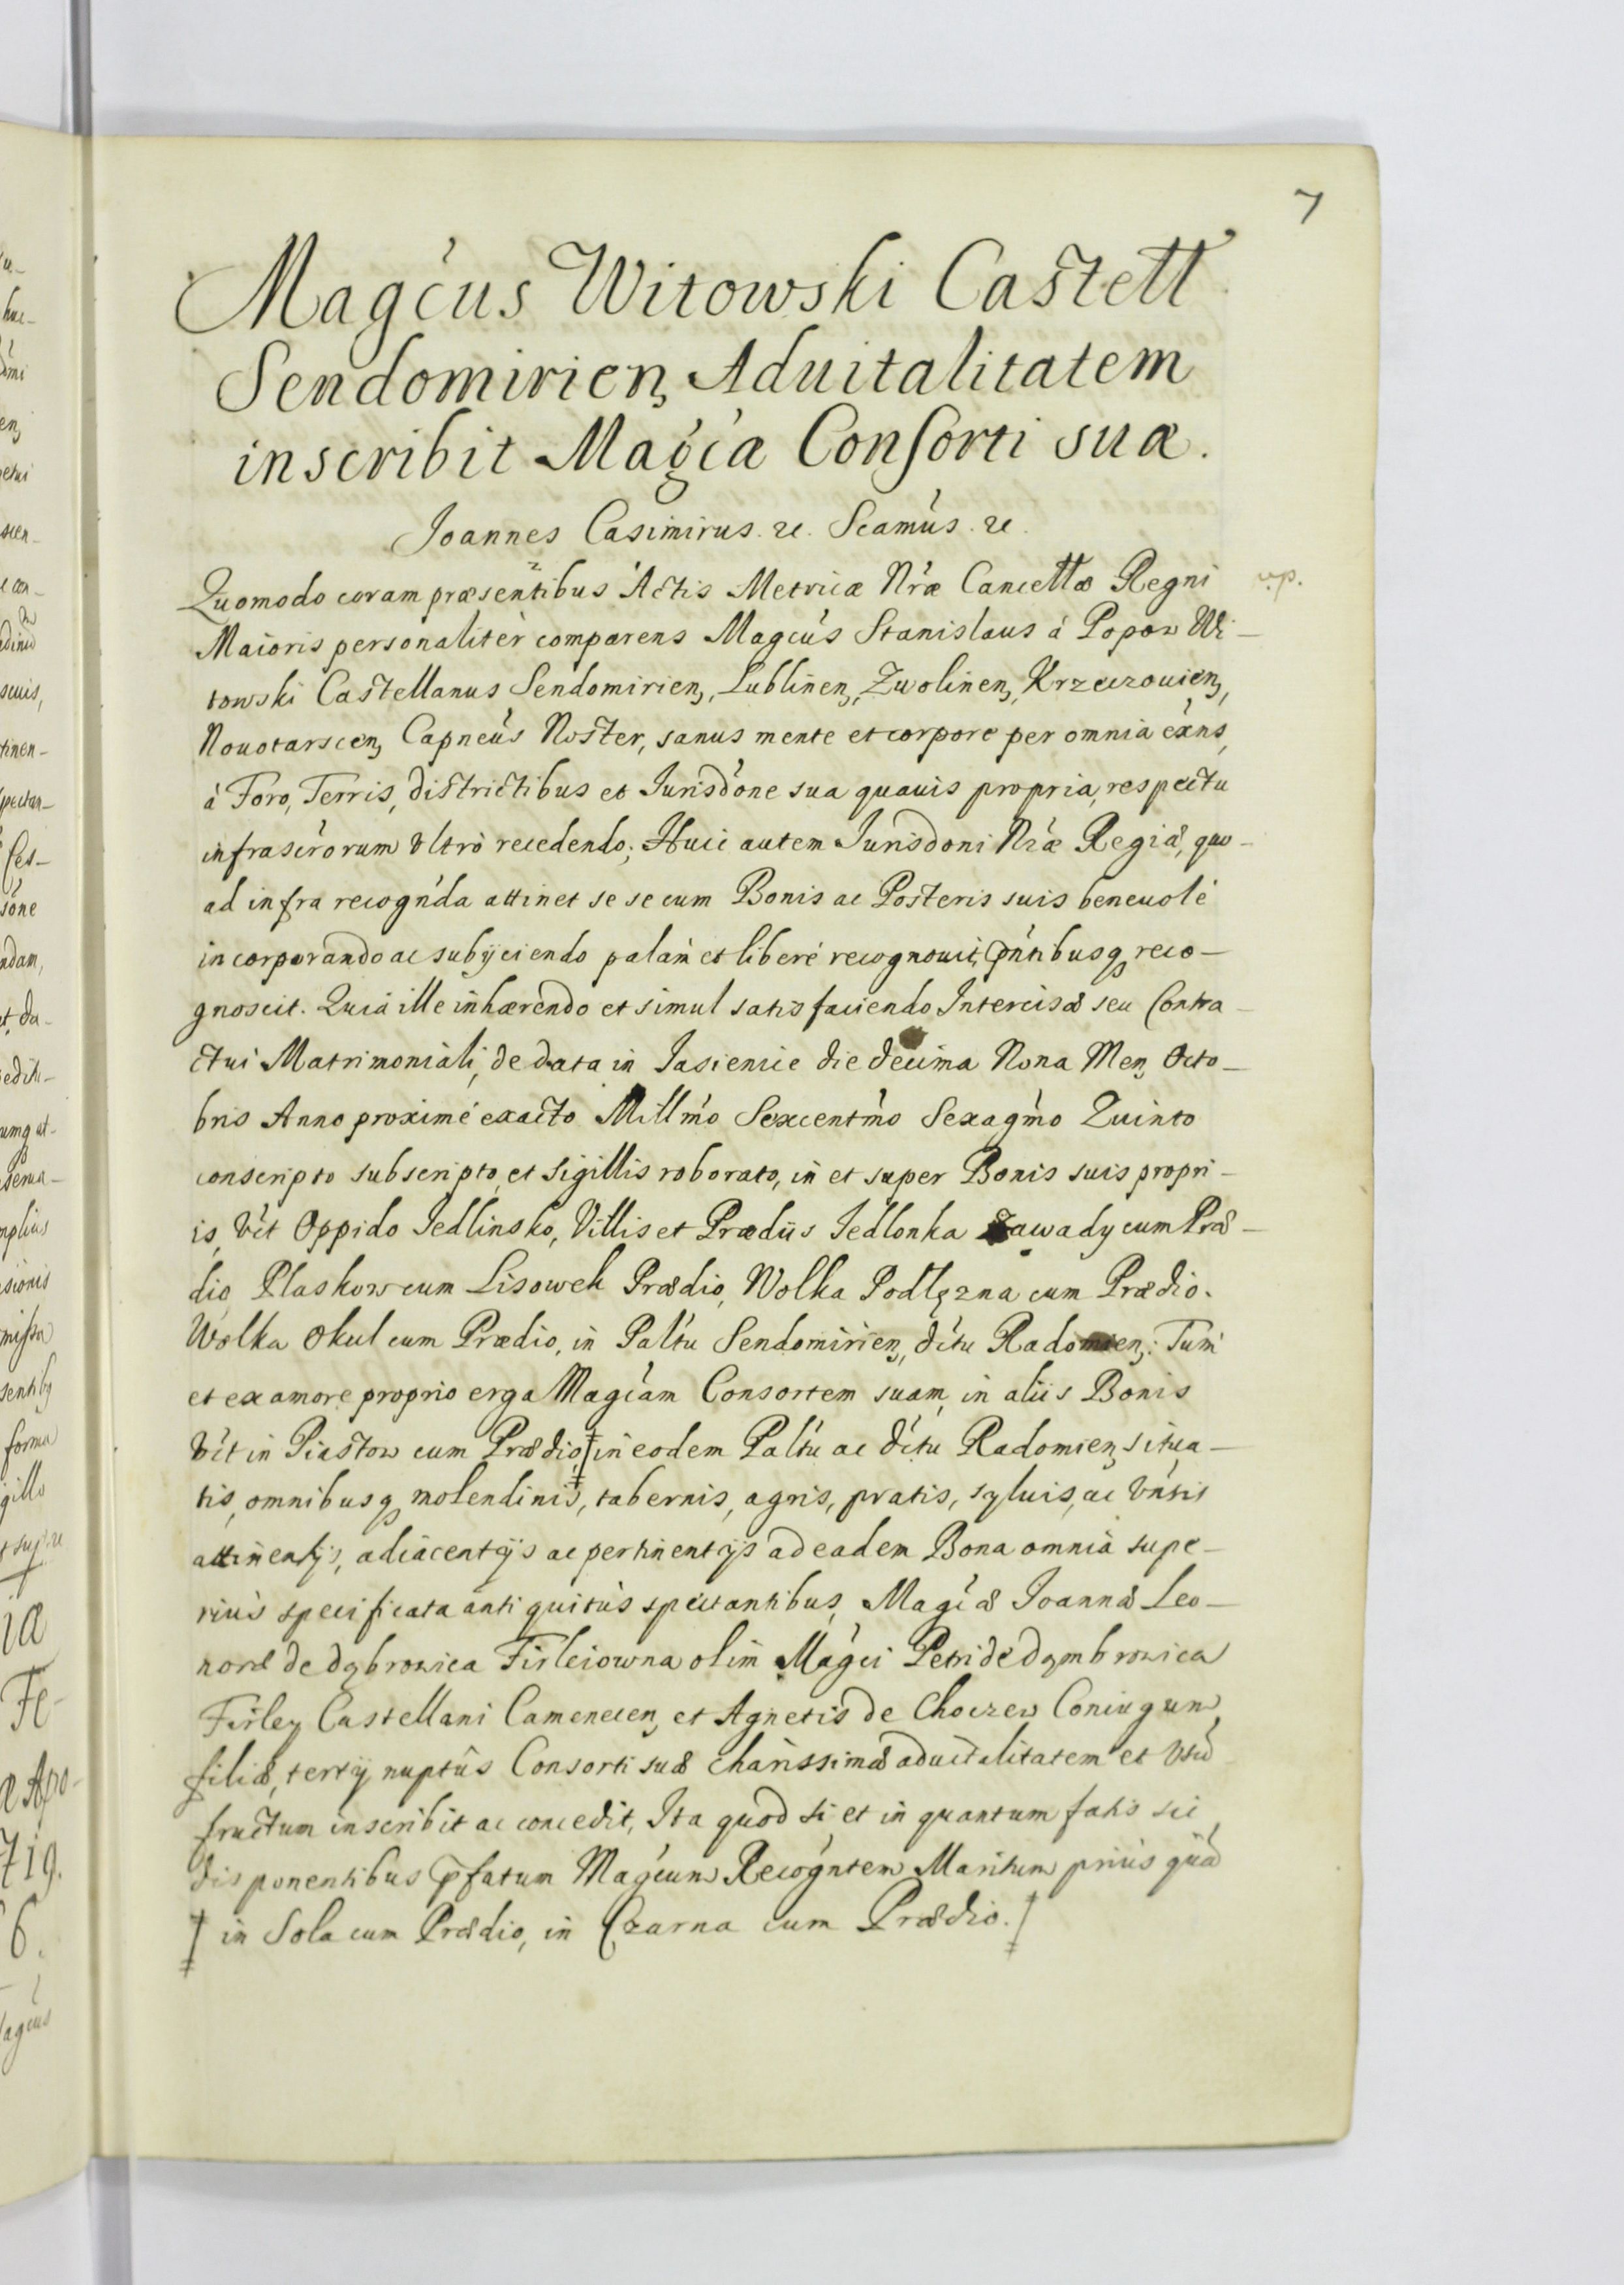 7
Magcus Witowski Castell
Sendomirien, Aduitalitatem
inscribit Magcæ Consorti suæ.
Joannes Casimirus. etc. Scamus. etc.
Quomodo coram præsentibus Actis Metricæ Nræ Cancellæ Regni
Maioris personaliter comparens Magcus Stanislaus à Popow Wi-
towski Castellanus Sendomirien, Lublinen, Zwolinen, Krzeczouien,
Nouotarscen, Capneus Noster, sanus mente et corpore per omnia exns,
à Foro, Terris, districtibus et Jurisdone sua quauis propria, respectu
infrascrorum vltro recedendo; Huic autem Jurisdoni Nræ Regiæ, quo-
ad infra recognda attinet se se cum Bonis ac Posteris suis beneuolè
incorporando ac subijciendo palam et liberè recognouit, pntibusq reco-
gnoscit. Quia ille inhærendo et simul satisfaciendo Intercisæ seu Contra-
ctui Matrimoniali, de data in Jasienice die decima Nona Men, Octo-
bris Anno proximè exacto Millmo Sexcentmo Sexagmo Quinto
conscripto subscripto, et sigillis roborato, in et super Bonis suis propri-
is, vĉt Oppido Jedlinsko, Villis et Prædiis Jedlonka Zawady cum Præ-
dio, Plaskow cum Lisowek Prædio, Wolka Podlęzna cum Prædio.
Wolka Okul cum Prædio, in Paltu Sendomirien, dctu Radomien,: Tum
et ex amore proprio erga Magcam Consortem suam, in aliis Bonis
vĉt in Piastow cum Prædio, ‡ in eodem Paltu ac dctu Radomien, situa-
tis, omnibusq molendinis, tabernis, agris, pratis, syluis, ac vnsis
attinentijs, adiacentijs ac pertinentijs ad eadem Bona omnia supe-
rius specificata antiquitùs spectantibus, Magcæ Joannæ Leo-
noræ de dąbrowica Firleiowna olim Magci Petri de dąmbrowica
Firley Castellani Camenecen, et Agnetis de Choczew Coniugum,
filiæ, tertij nuptûs Consorti suæ charissimæ aduitalitatem et vsu
fructum inscribit ac concedit, Ita quod si et in quantum fatis sic
disponentibus pfatum Magcum Recogntem Maritum priùs quã
‡ in Sola cum Prædio, in Czarna cum Prædio. ‡